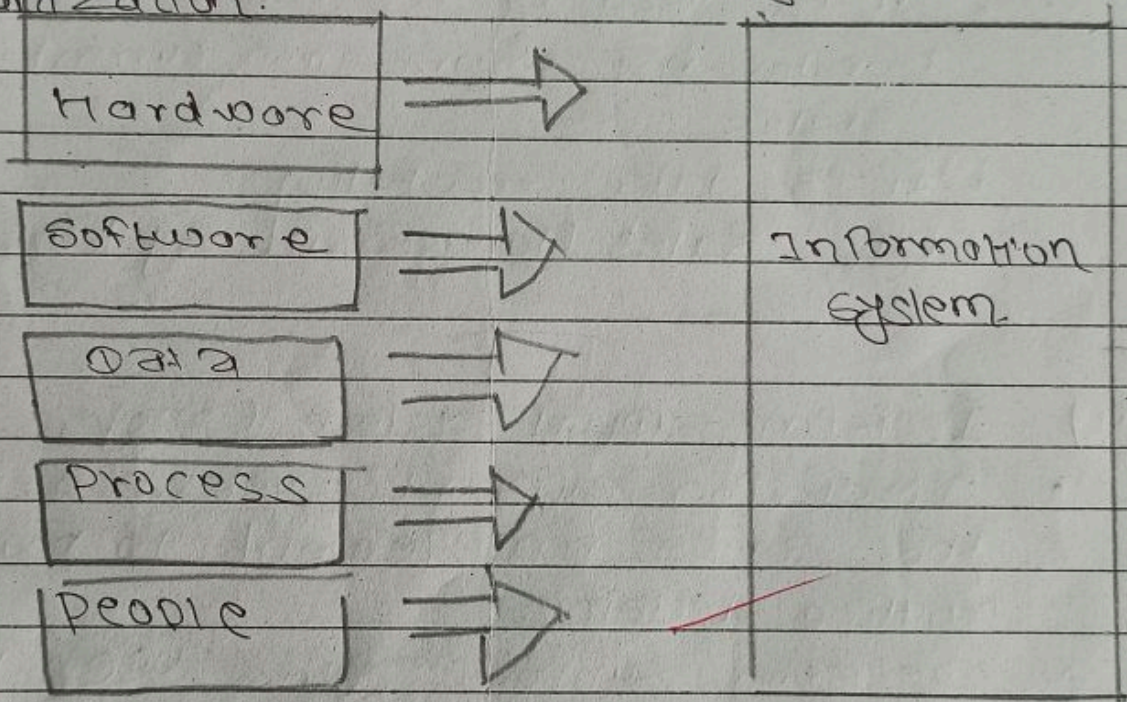 Hardware
Software
Data
Process
People
Information
System